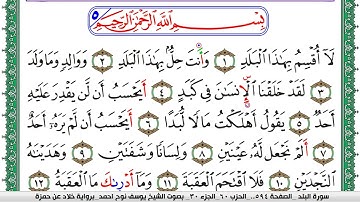 ٥
بِسْمِ ٱللَّهِ ٱلرَّحْمَٰنِ ٱلرَّحِيمِ
لَآ أُقْسِمُ بِهَٰذَا ٱلْبَلَدِ ١ وَأَنتَ حِلٌّۢ بِهَٰذَا ٱلْبَلَدِ ٢ وَوَالِدٍ وَمَا وَلَدَ
٣ لَقَدْ خَلَقْنَا ٱلْإِنسَٰنَ فِى كَبَدٍ ٤ أَيَحْسِبُ أَن لَّن يَقْدِرَ عَلَيْهِ
أَحَدٌ ٥ يَقُولُ أَهْلَكْتُ مَالًا لُّبَدًا ٦ أَيَحْسِبُ أَن لَّمْ يَرَهُۥٓ أَحَدٌ
٧ أَلَمْ نَجْعَل لَّهُۥ عَيْنَيْنِ ٨ وَلِسَانًا وَشَفَتَيْنِ ٩ وَهَدَيْنَٰهُ
ٱلنَّجْدَيْنِ ١٠ فَلَا ٱقْتَحَمَ ٱلْعَقَبَةَ ١١ وَمَآ أَدْرَىٰكَ مَا ٱلْعَقَبَةُ ١٢
سورة البلد _الصفحة ٥٩٤_ الحزب ٦٠_ الجزء ٣٠_ بصوت الشيخ يوسف نوح احمد_ برواية خلاد عن حمزة